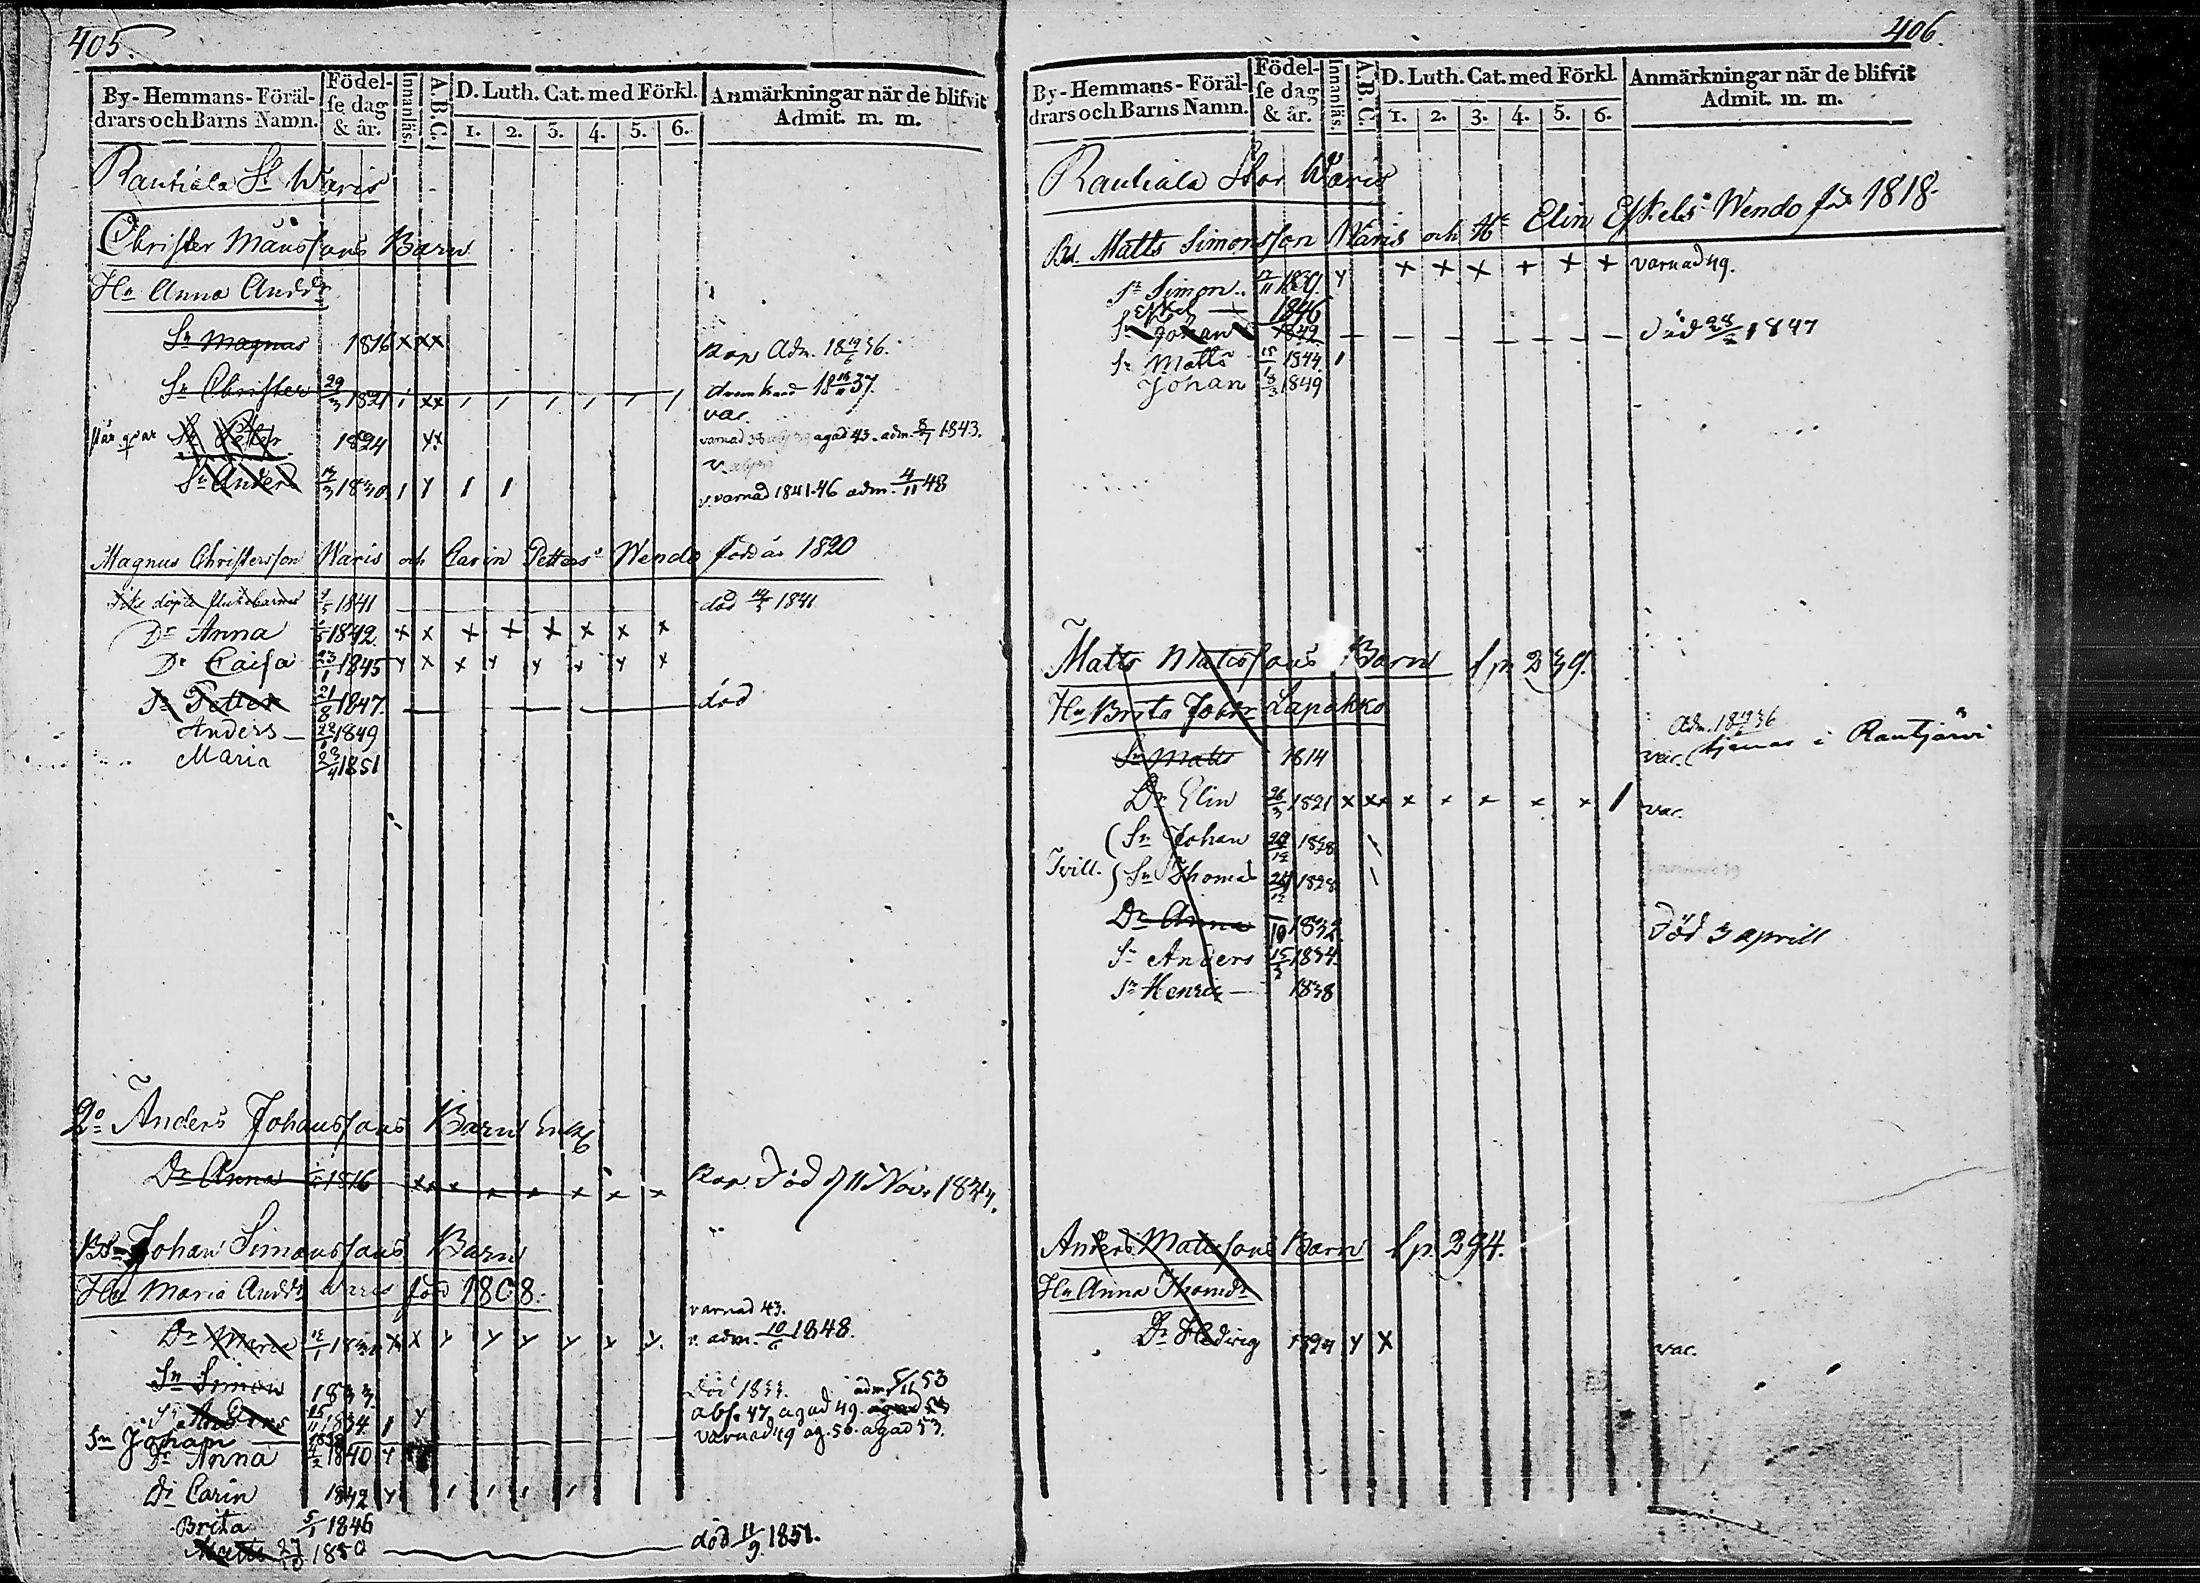 405.
By-Hemmans-Föräl-
drars och Barns Namn.
Födel-
se dag
& år.
Innanläs.
A.B.C.
D. Luth. Cat. med Förkl.
1. 2. 3. 4. 5. 6.
Anmärkningar när de blifvit
Admit. m. m.
Rautiala St Waris
Christer Månssons Barn
Hu Anna Andsdr
Sn Magnus 1816 x xx Kop Adm. 18 19/6 36.
Sn Christer 29/3 1821 / xx / / / / / / 18 37.
var.
Sn Petter 1824 xx varnad 38 agad 43. adm. 8/7 1843.
Sn Anders 13/3 1830 / y / / v. varnad 1841.46 adm. 4/11 48
Magnus Christersson Waris och Carin Petters Wendo född år 1820
Icke döpta flickebarnet 1841 död 1841
Dr Anna 1842. x x x x x x x x
Dr Caisa 23/1 1845 y x x y y x y x
Sn Petter 21/8 1847. död
Anders 1849
Maria 23/4 1851
2o Anders Johanssons Barn
Dr Anna 1816 xx x x x x x x Kop död d 11 Nov. 1834.
Bd. Johan Simonssons Barn
Hu Maria Andsdr Waris född 1808.
varnad 43.
Dr Maria 12/1 1831 x x y y y y y y v. adm. 10/6 1848.
Sn Simon 1833 Död 1833. adm. 5/11 53
Sn Anders 25/11 1834 / y abs. 47. agad 49. agad 53
Sn Johan 1838 varnad 49 ag. 50. agad 53.
Dr Anna 4/2 1840 y
Dr Carin 1842 y / / / /
Brita 5/1 1846
Matts 27/10 1850 död 11/9 1851.
406.
By-Hemmans-Föräl-
drars och Barns Namn.
Födel-
se dag
& år.
Innanläs.
A.B.C.
D. Luth. Cat. med Förkl.
1. 2. 3. 4. 5. 6.
Anmärkningar när de blifvit
Admit. m. m.
Rautiala Stor Waris
Bd. Matts Simonsson Waris och Hu Elin Eskelsdr Wendo född 1818.
Sn Simon 17/11 1839. y x x x x x x varnad 49.
Eskel 1846
Sn Johan 1842. Död 1847
Sn Matts 15/1 1844. /
Johan 18/3 1849
Matts Matssons Barn Sp. 239.
Hu Brita Johsdr Lapakko
Adm. 18 19/6 36
Sn Matts 1814 var. (tjenar i Rautjärvi
Dr Elin 26/3 1821 x xx x x x x x / var.
Tvill.
Sn Johan 24/12 1828
Sn Thomas 24/12 1828
Dr Anna 10 1832 Död 3 aprill
Sn Anders 15/3 1834.
Sn Henric 1838
Anders Matssons Barn Sp. 294.
Hu Anna Thomasdr
Dr Hedvig y x var.